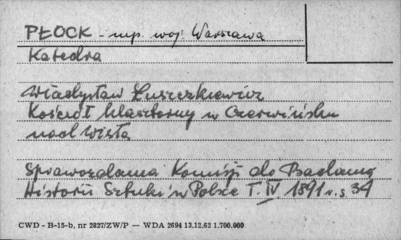 PŁOCK - mp. woj. Warszawa
Katedra
Władysław Łuszczkiewicz
Kościół klasztorny w Czerwińsku
nad Wisłą
Sprawozdania Komisji do Badania
Historii Sztuki w Polsce T. IV 1891 r. s 34
CWD - H-15-b, nr 2827/ZW/P — WDA 2694 13.12.62 1.700.000